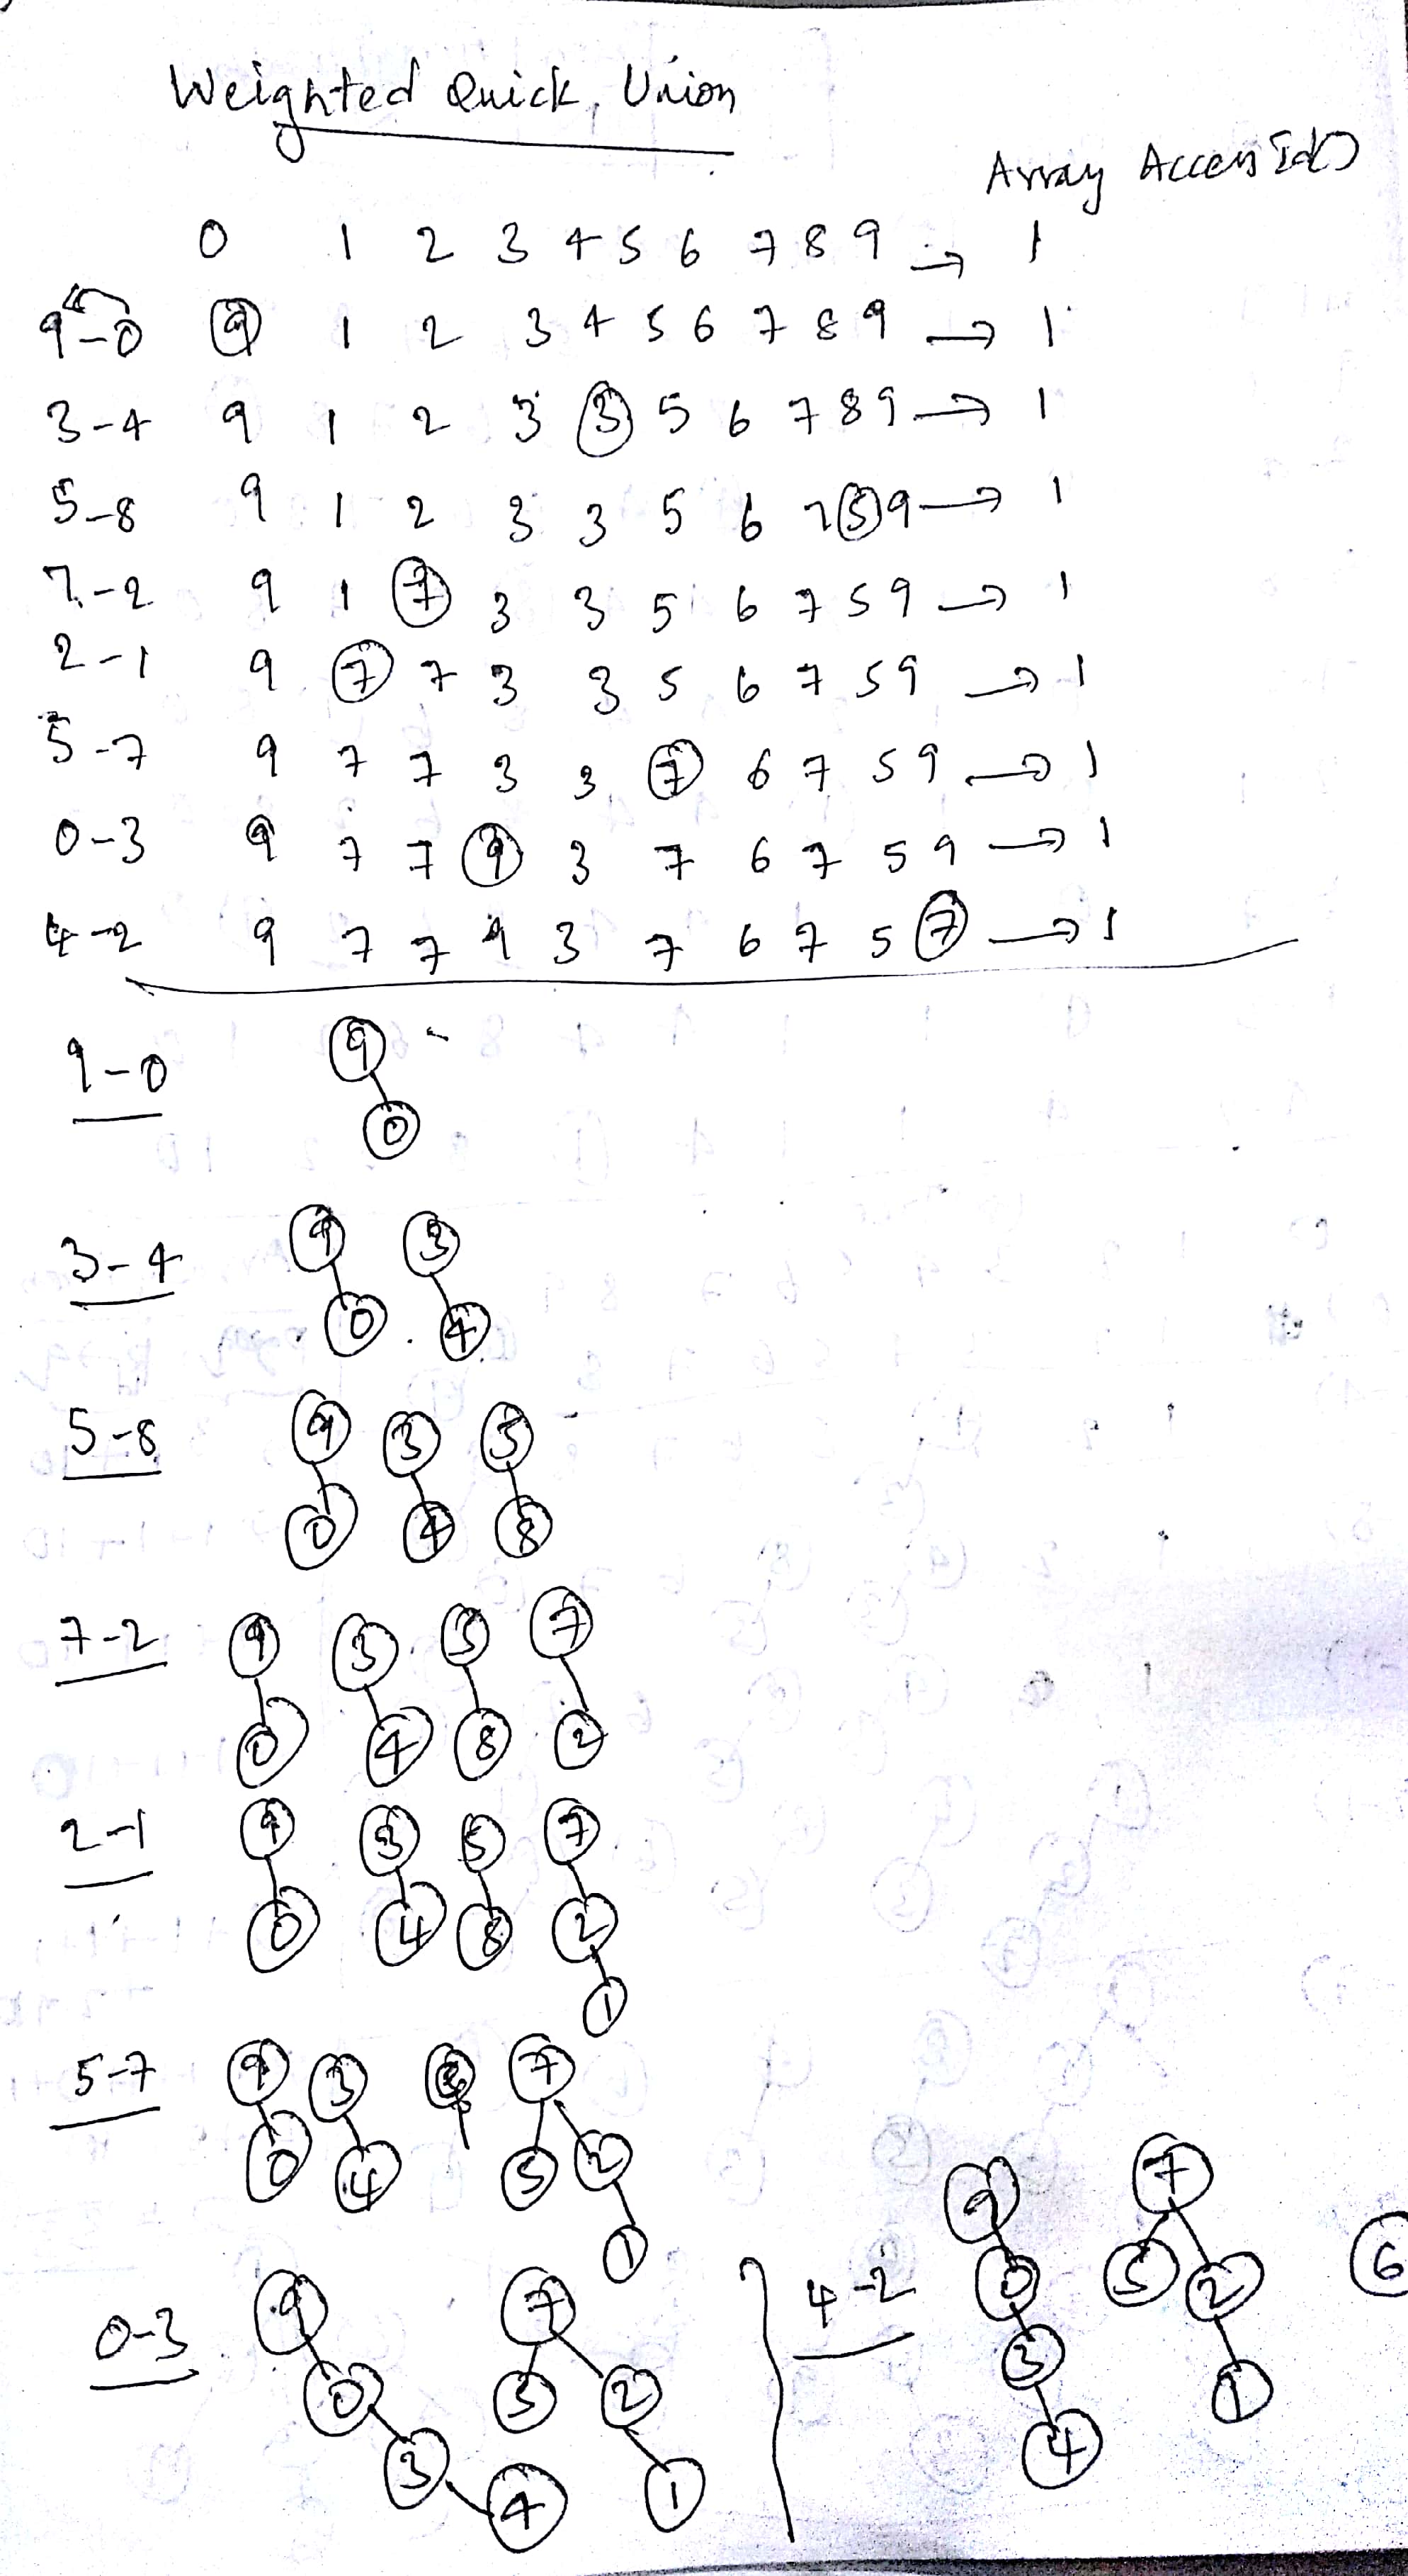 Weighted Quick Union
Array Access Id()
0 1 2 3 4 5 6 7 8 9 → 1
9-0 9 1 2 3 4 5 6 7 8 9 → 1
3-4 9 1 2 3 3 5 6 7 8 9 → 1
5-8 9 1 2 3 3 5 6 7 5 9 → 1
7-2 9 1 7 3 3 5 6 7 5 9 → 1
2-1 9 7 7 3 3 5 6 7 5 9 → 1
5-7 9 7 7 3 3 7 6 7 5 9 → 1
0-3 9 7 7 9 3 7 6 7 5 9 → 1
4-2 9 7 7 9 3 7 6 7 5 7 → 1
9-0 9
0
3-4 9 3
0 4
5-8 9 3 5
0 4 8
7-2 9 3 5 7
0 4 8 2
2-1 9 3 5 7
0 4 8 2
1
5-7 9 3 7
0 4 5 2
1
0-3 9 7
0 5 2
3 4 1
4-2 9 7
0 5 2 6
3 1
4